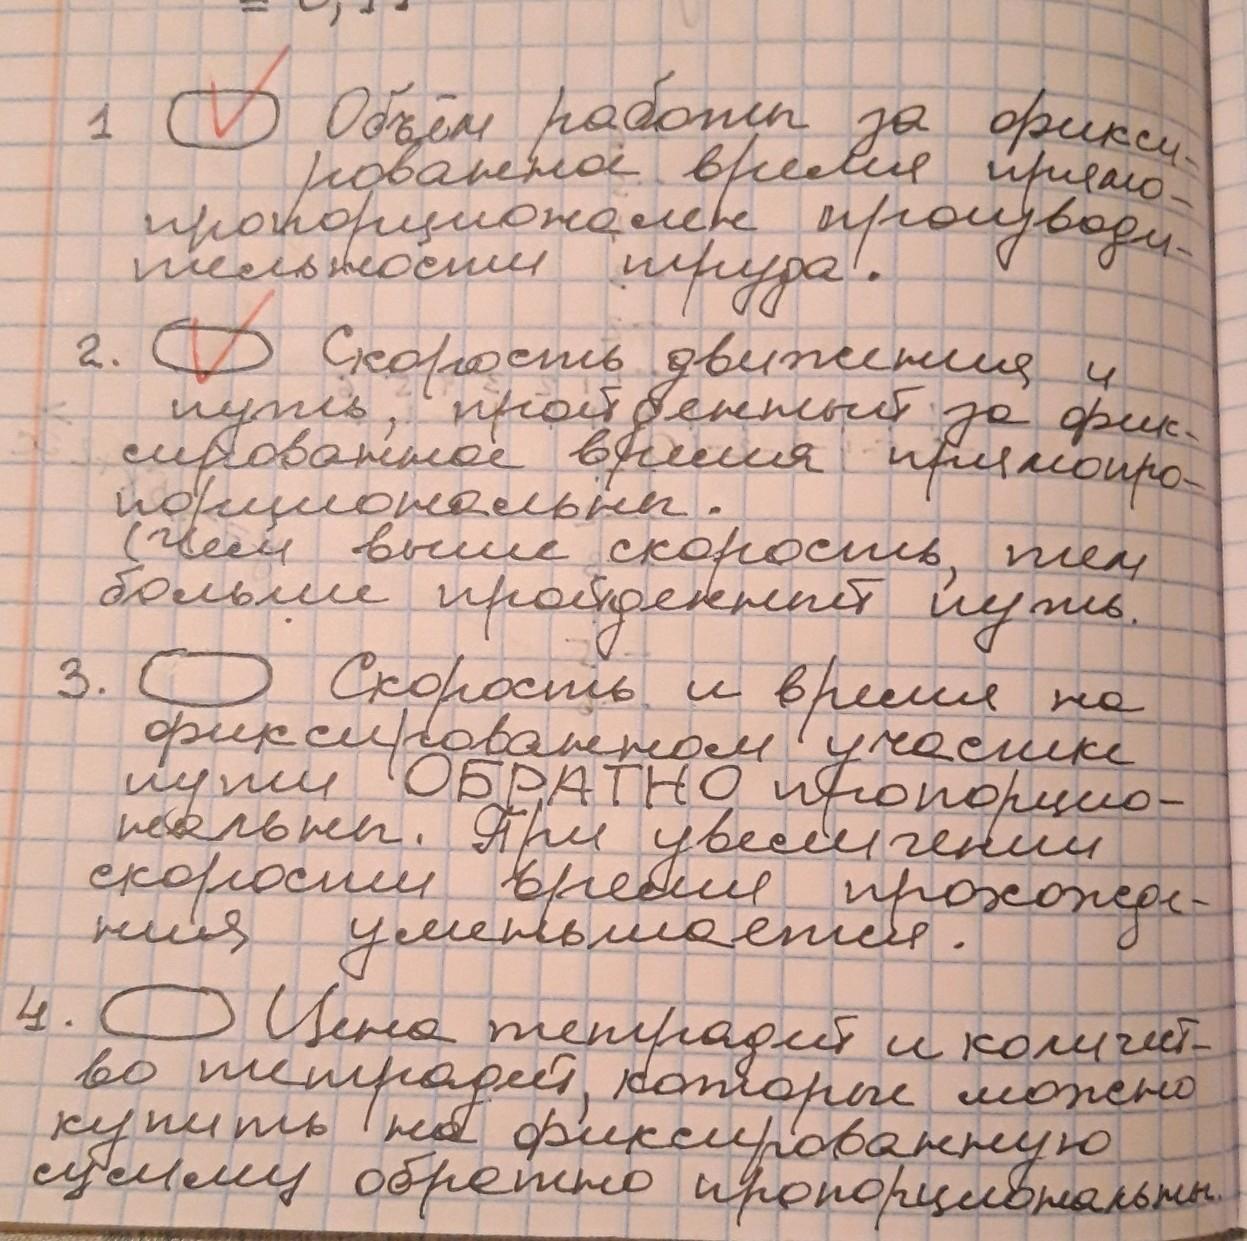 1 Объём работы за фикси-
рованное время прямо-
пропорционален производи-
тельности труда.
2. Скорость движения и
путь, пройденный за фик-
сированное время прямопро-
порциональны.
(Чем выше скорость, тем
больше пройденный путь.
3. Скорость и время на
фиксированном участке
пути ОБРАТНО пропорцио-
нальны. При увеличении
скорости время прохожде-
ния уменьшается.
4. Цена тетрадей и количест-
во тетрадей, которые можно
купить на фиксированную
сумму обратно пропорциональны.